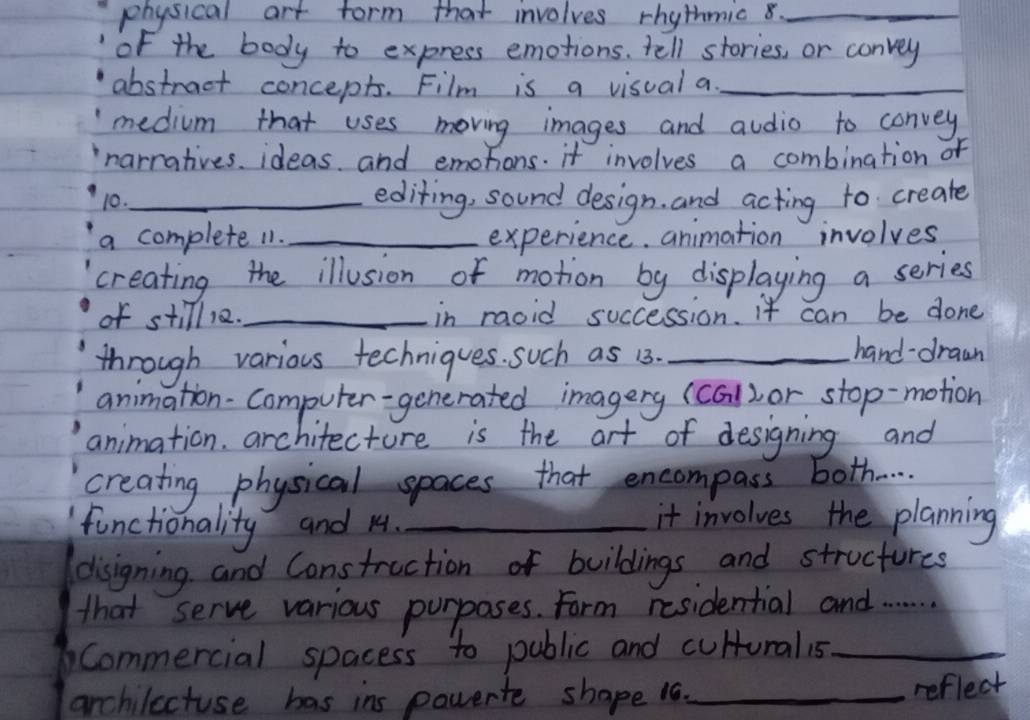 physical art form that involves rhythmic 8.__________
of the body to express emotions. tell stories, or convey
abstract concepts. Film is a visual a.__________
medium that uses moving images and audio to convey
narratives. ideas. and emotions. it involves a combination of
10.__________ editing, sound design. and acting to create
a complete 11.__________ experience. animation involves
creating the illusion of motion by displaying a series
of still 12.__________ in racid succession. it can be done
through various techniques. such as 13.__________ hand-drawn
animation - Computer-generated imagery (CGI) or stop-motion
animation. architecture is the art of designing and
creating physical spaces that encompass both.....
functionality and 14.__________ it involves the planning
disigning. and Construction of buildings and structures
that serve various purposes. Form residential and .......
Commercial spacess to public and cultural 15.__________
archilectuse has ins powerte shape 16.__________ reflect